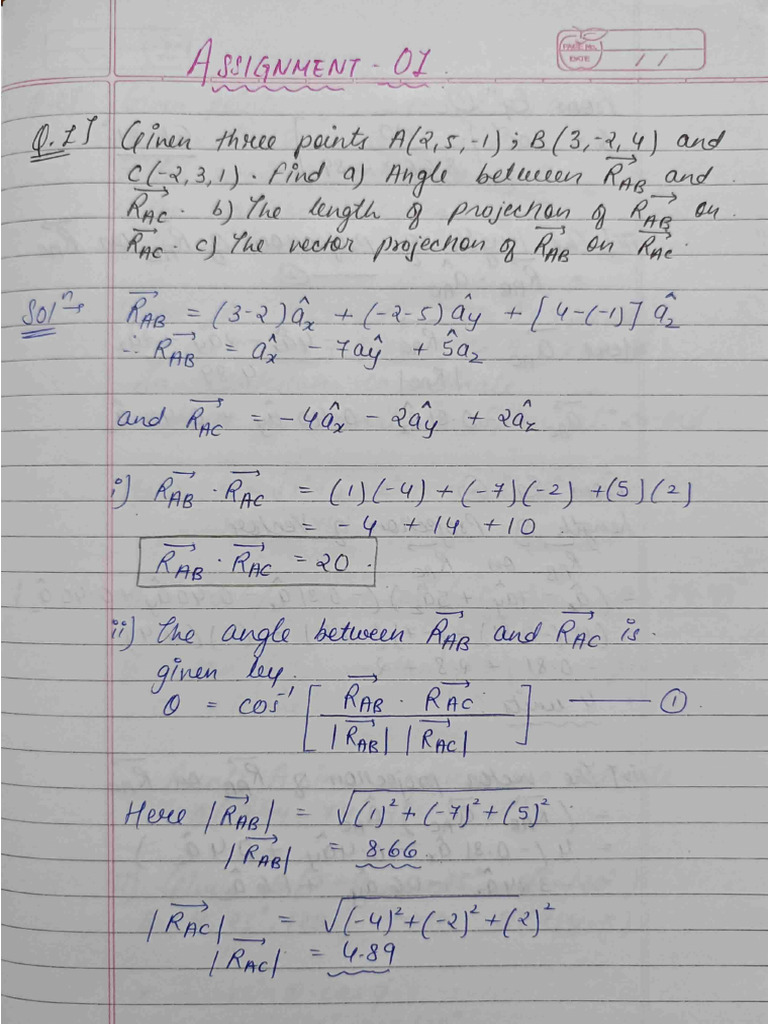 ASSIGNMENT-01.
PAGE NO.
DATE / /
Q.1] Given three points A(2,5,-1); B(3,-2,4) and
C(-2,3,1). Find a) Angle between R⃗AB and
R⃗AC. b) The length of projection of R⃗AB on
R⃗AC. c) The vector projection of R⃗AB on R⃗AC.
Solⁿ→ R⃗AB = (3-2)âx + (-2-5)ây + [4-(-1)] âz
∴ R⃗AB = âx - 7ây + 5âz
and R⃗AC = -4âx - 2ây + 2âz
i) R⃗AB · R⃗AC = (1)(-4) + (-7)(-2) + (5)(2)
= -4 + 14 + 10
R⃗AB · R⃗AC = 20.
ii) The angle between R⃗AB and R⃗AC is
given by.
θ = cos⁻¹ [ R⃗AB · R⃗AC / |R⃗AB| |R⃗AC| ] — ①
Here |R⃗AB| = √(1)² + (-7)² + (5)²
|R⃗AB| = 8.66
|R⃗AC| = √(-4)² + (-2)² + (2)²
|R⃗AC| = 4.89